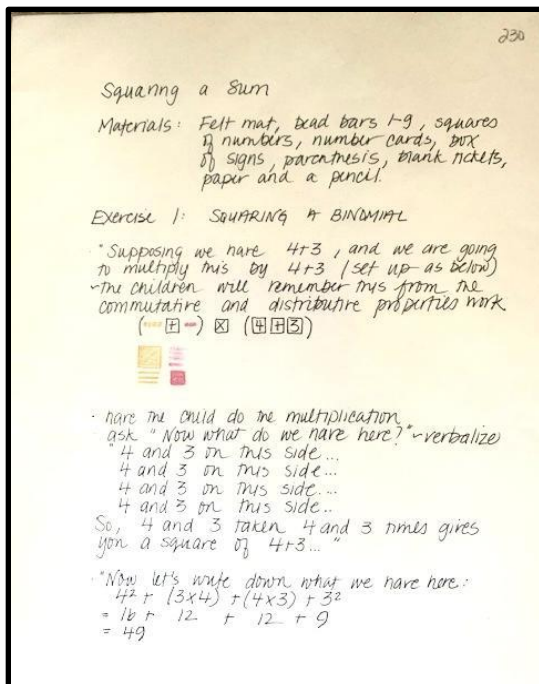 230
Squaring a Sum
Materials: Felt mat, bead bars 1-9, squares
of numbers, number cards, box
of signs, parenthesis, blank tickets,
paper and a pencil.
Exercise 1: SQUARING A BINOMIAL
· "Supposing we have 4+3, and we are going
to multiply this by 4+3 (set up as below)
~the children will remember this from the
commutative and distributive properties work
( + ) x (4+3)
· have the child do the multiplication
ask "Now what do we have here?" ~verbalize
"4 and 3 on this side...
4 and 3 on this side...
4 and 3 on this side...
4 and 3 on this side..
So, 4 and 3 taken 4 and 3 times gives
you a square of 4+3..."
· "Now let's write down what we have here:
4² + (3x4) + (4x3) + 3²
= 16 + 12 + 12 + 9
= 49